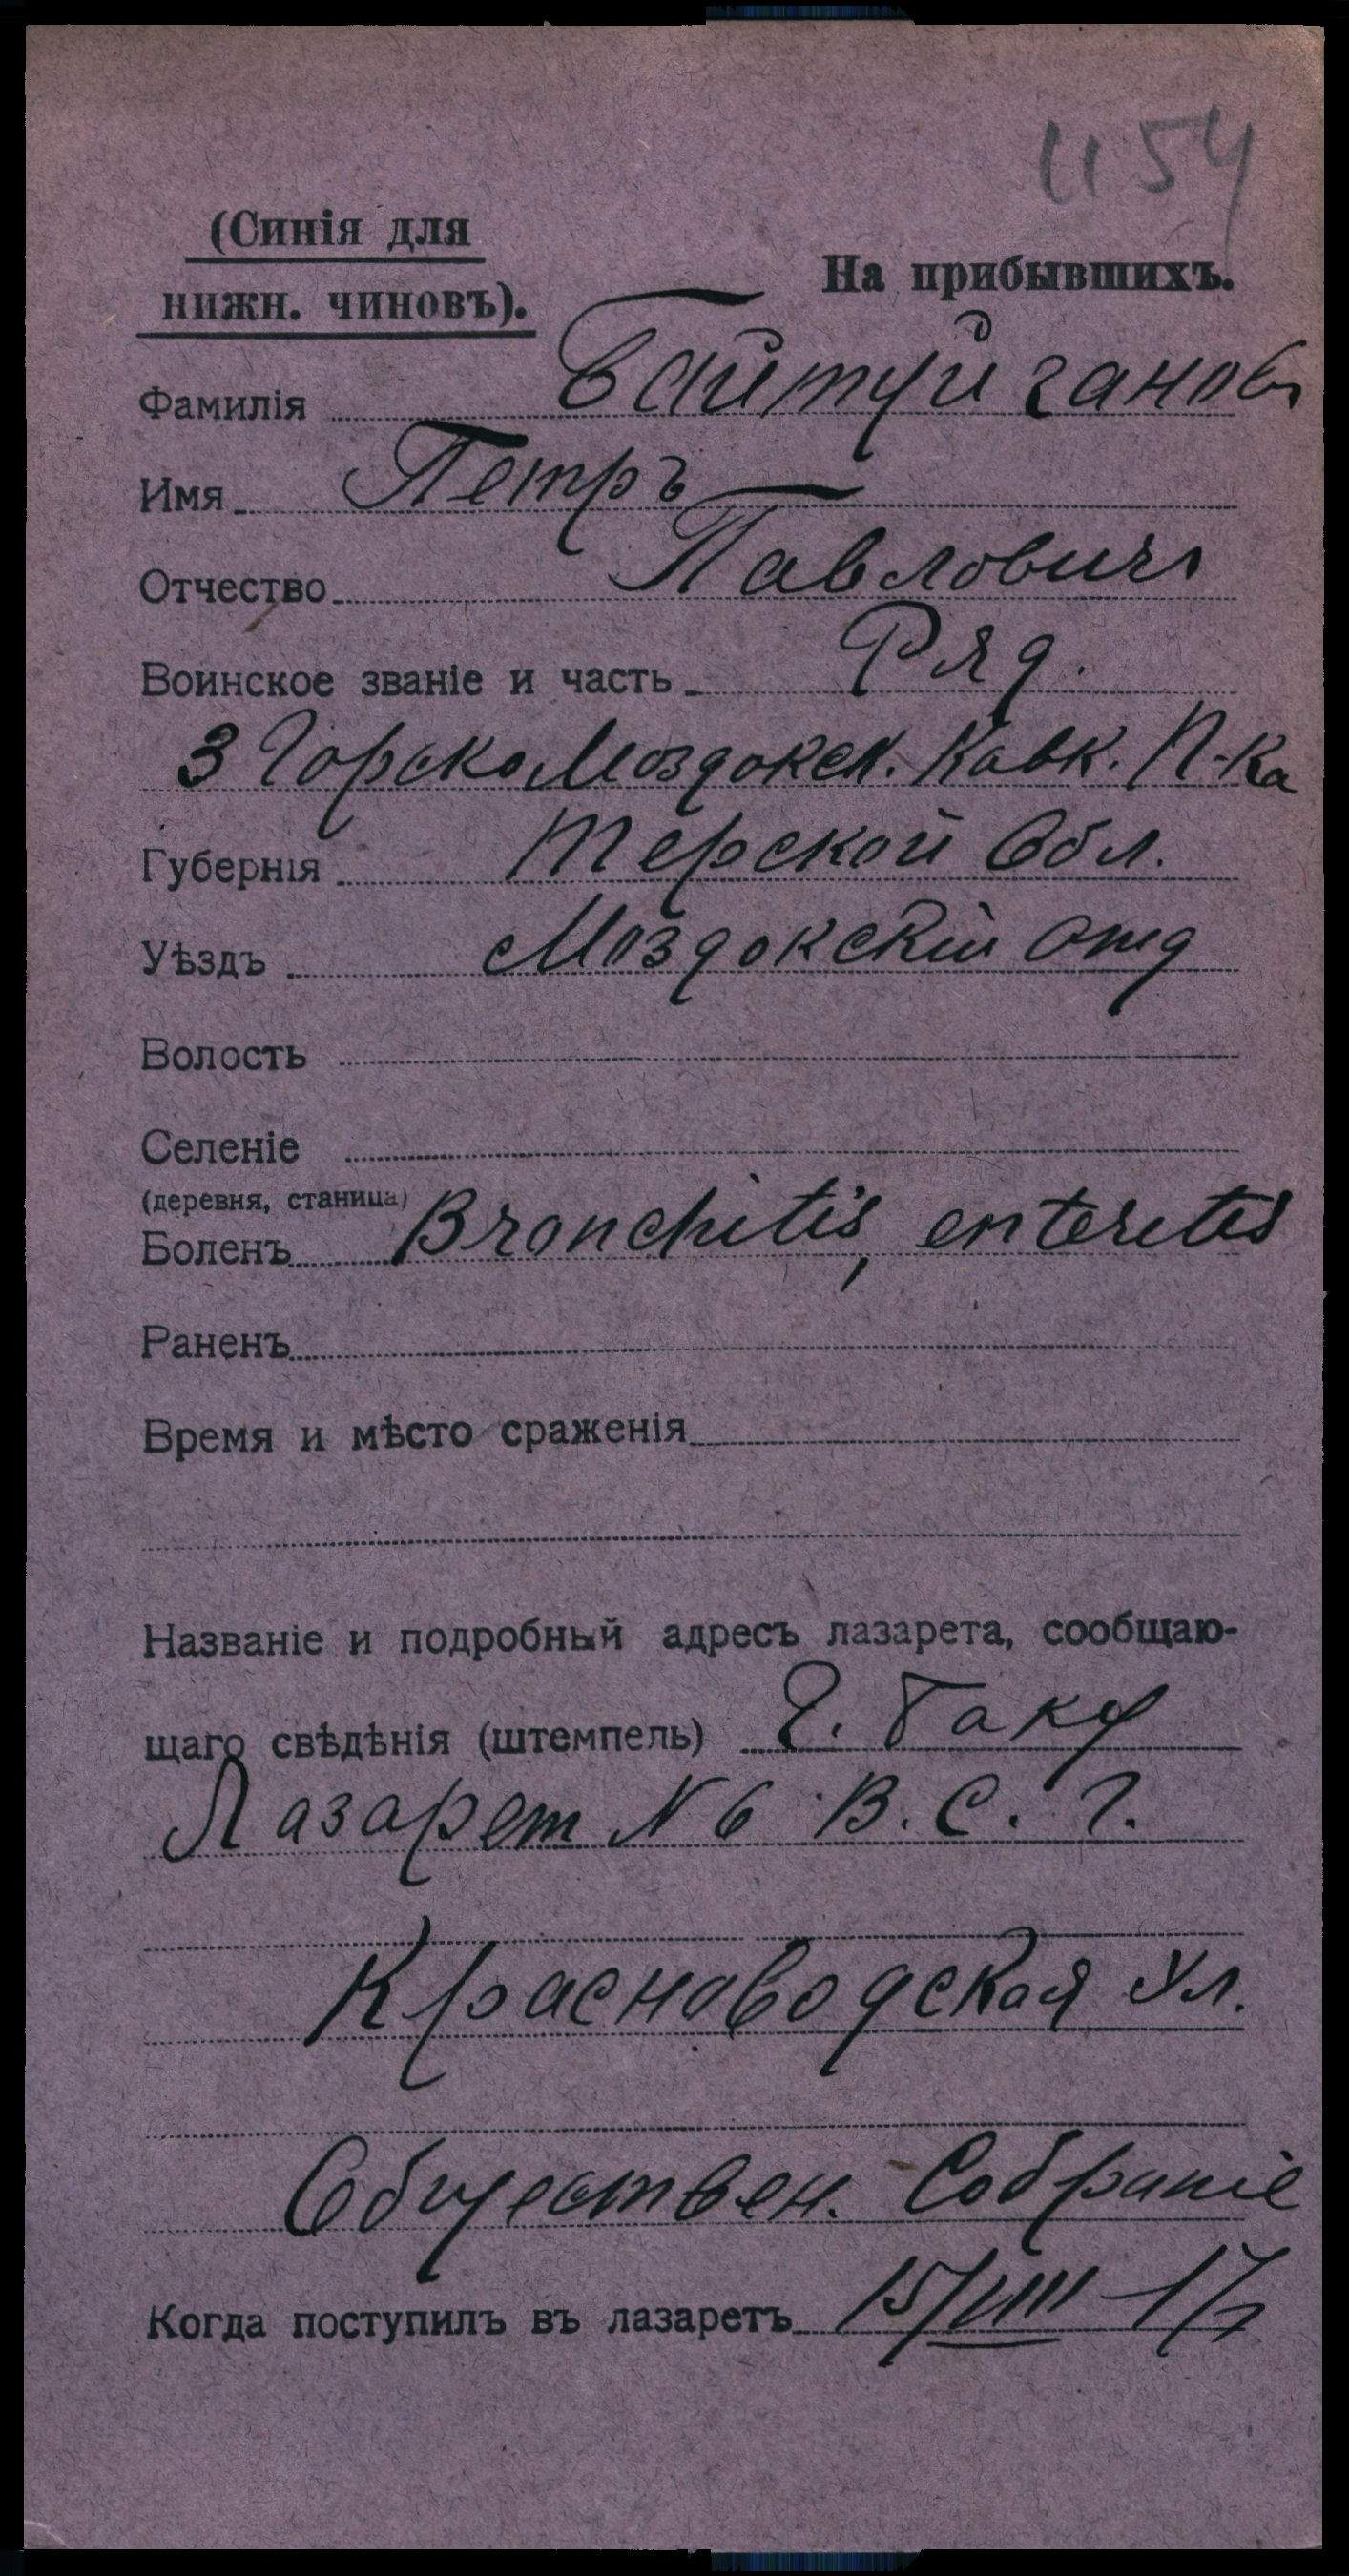 1154
(Синія для
нижн. чиновъ).
На прибывшихъ.
Фамилія Байтуйгановъ
Имя Петръ
Отчество Павловичъ
Воинское званіе и часть Ряд.
3 Горско Моздокск. Кавк. П-ка
Губернія Терской Обл.
Уѣздъ Моздокскій отд
Волость
Селеніе
(деревня, станица)
Боленъ Bronchitis, enteritis
Раненъ
Время и мѣсто сраженія
Названіе и подробный адресъ лазарета, сообщаю-
щаго свѣдѣнія (штемпель) г. Баку
Лазарет N 6 В. С. Г.
Красноводская ул.
Обществен. Собраніе
Когда поступилъ въ лазаретъ 15/VIII - 17